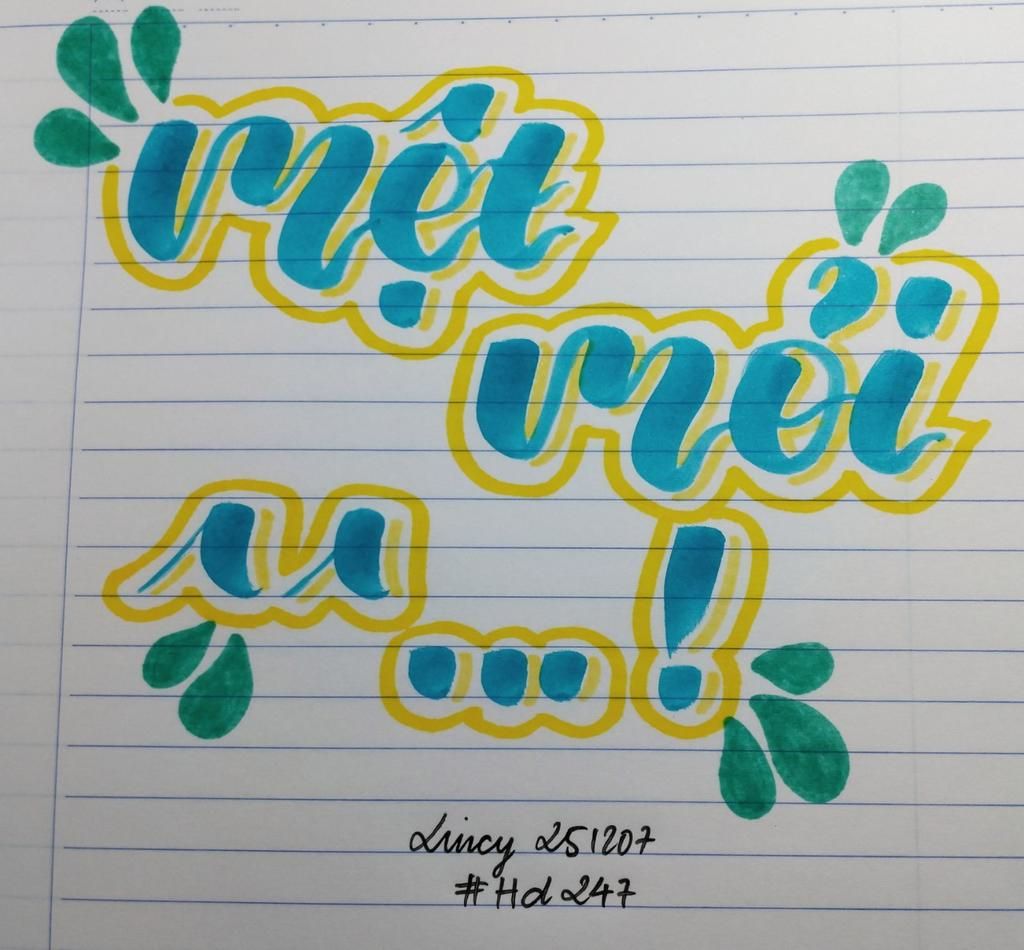 mệt
mỏi
...!
Lincy 251207
#Hd247